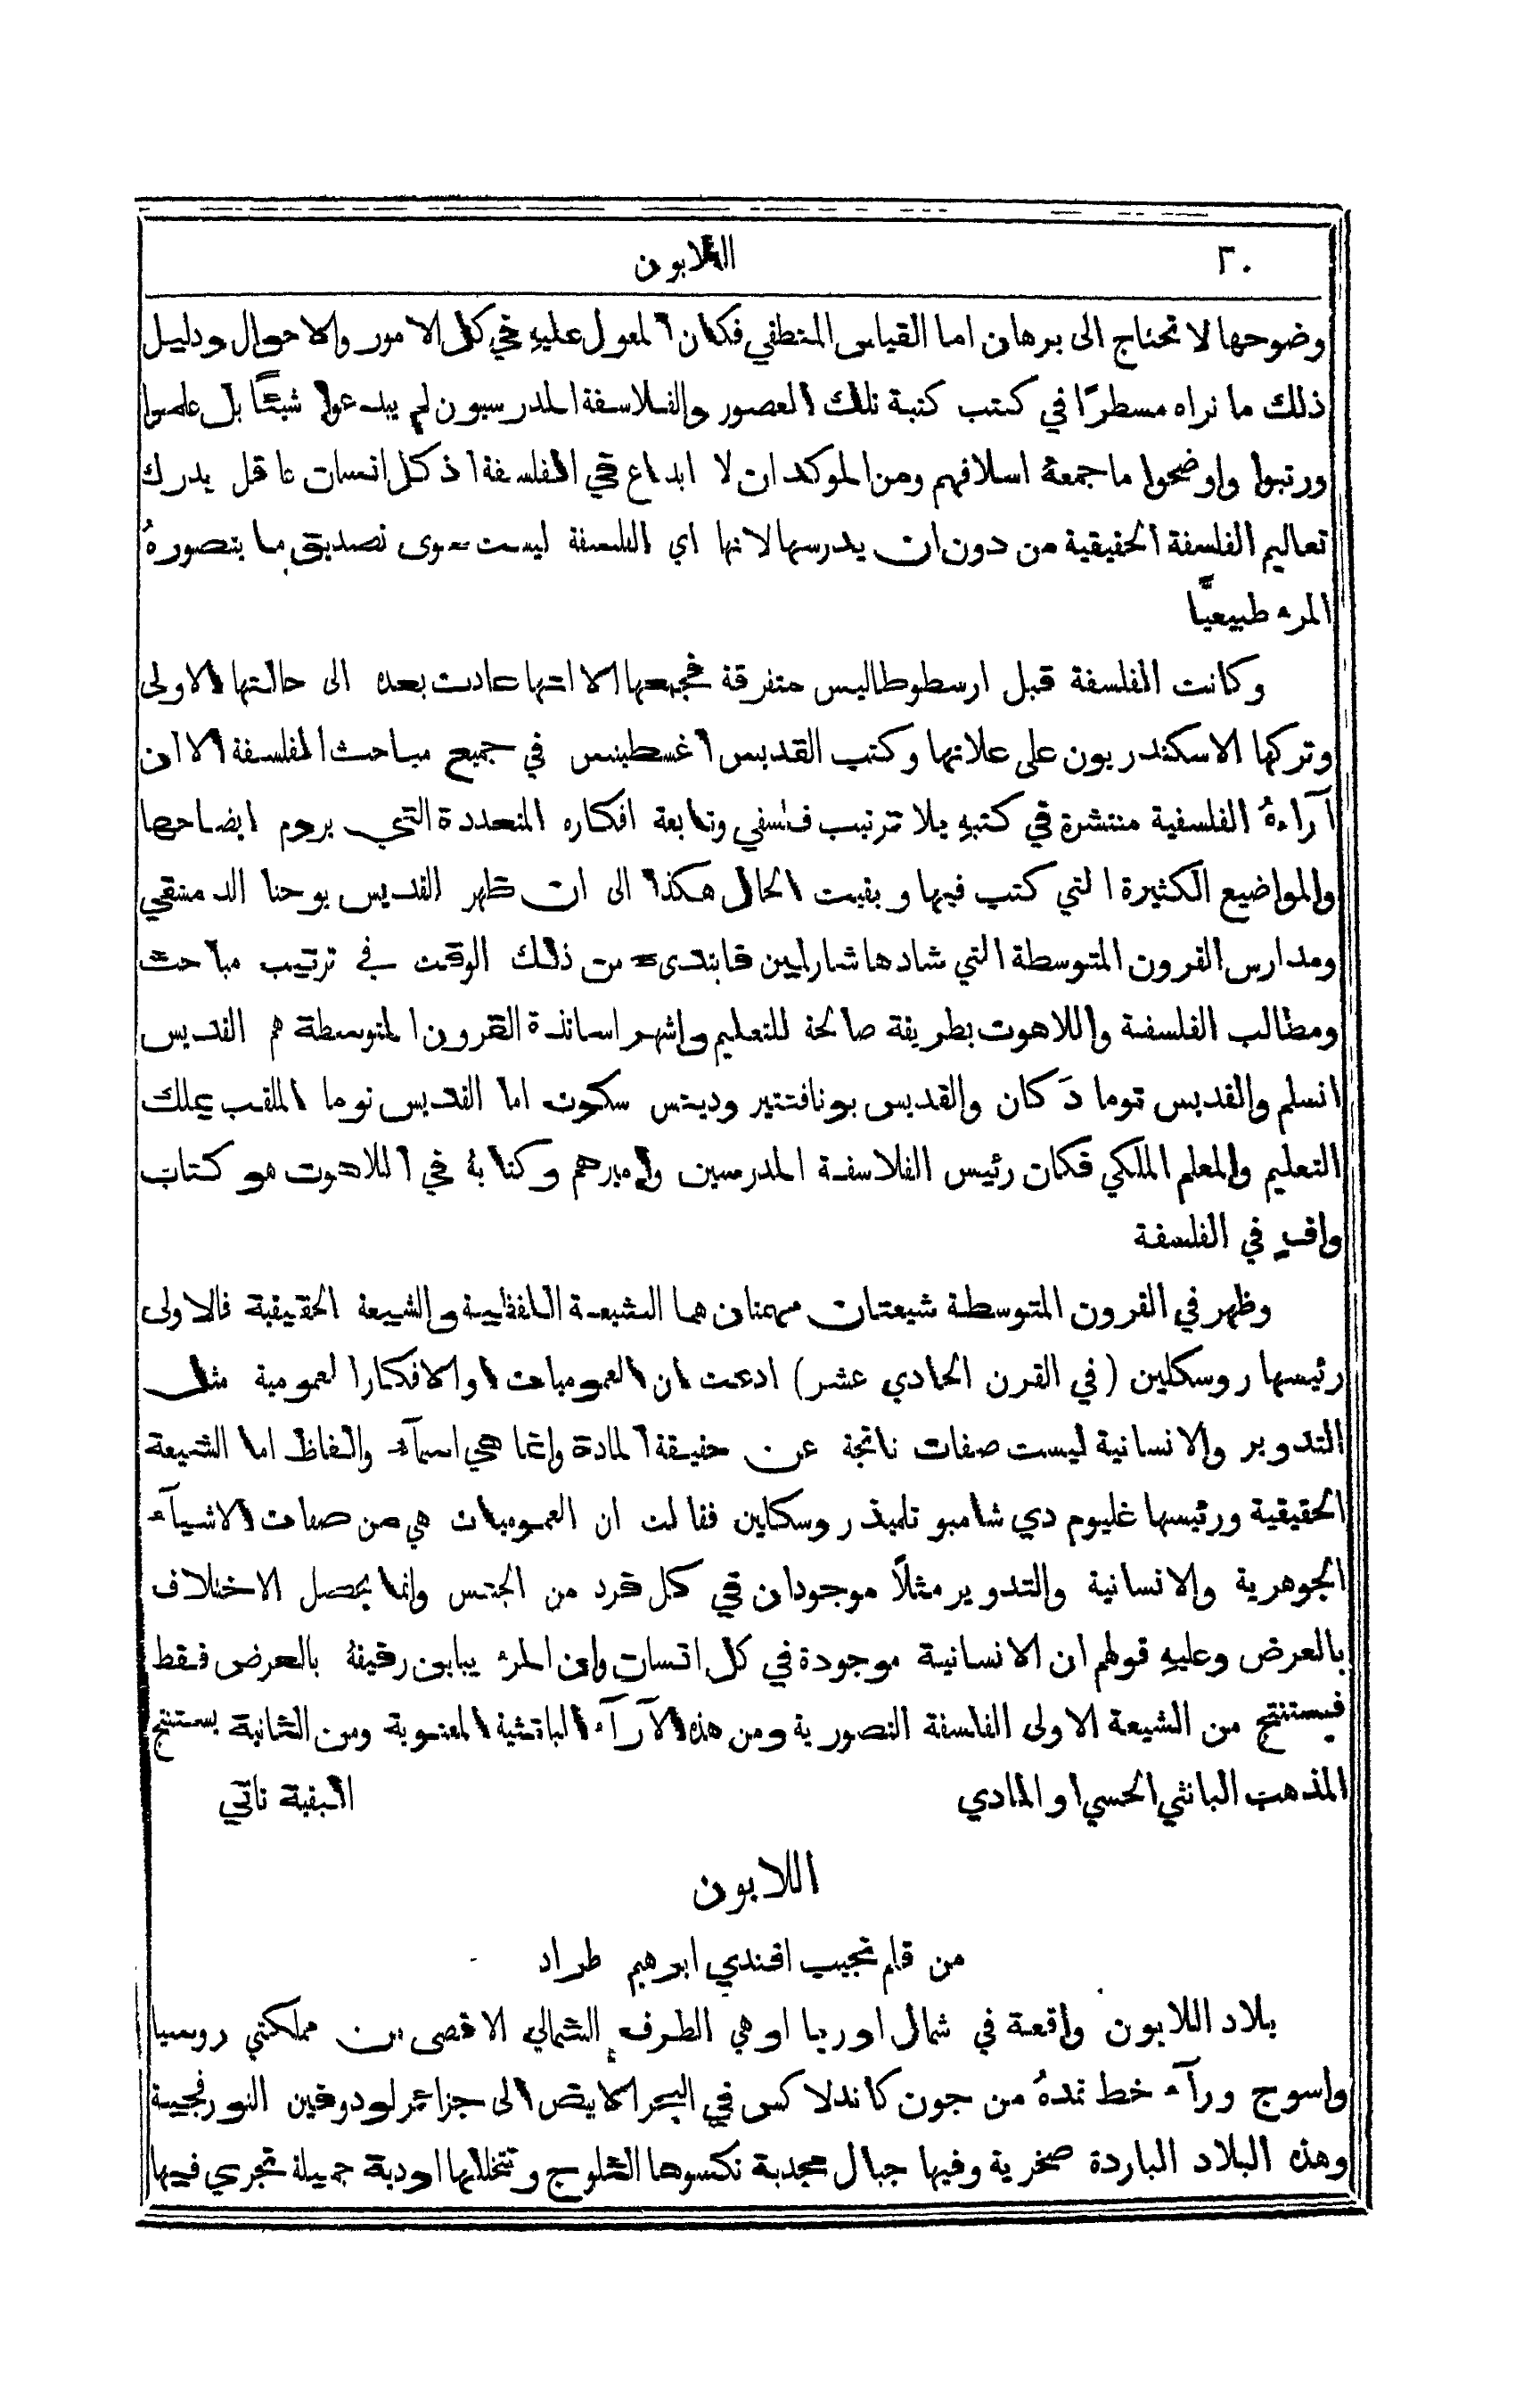 ٣٠ اللابون
وضوحها لا تحتاج الى برهان اما القياس المنطقي فكان المعول عليهِ في كل الامور والاحوال ودليل
ذلك ما نراه مسطرًا في كتب كتبة تلك العصور والفلاسفة المدرسيون لم يبدعوا شيئًا بل علموا
ورتبوا واوضحوا ما جمعهُ اسلافهم ومن الموكد ان لا ابداع في الفلسفة اذ كل انسان عاقل يدرك
تعاليم الفلسفة الحقيقية من دون ان يدرسها لانها اي الفلسفة ليست سوى تصديق ما يتصورهُ
المرء طبيعيًّا
وكانت الفلسفة قبل ارسطوطاليس متفرقة فجمعها الا انها عادت بعده الى حالتها الاولى
وتركها الاسكندريون على علاتها وكتب القديس اغسطينس في جميع مباحث الفلسفة الا ان
آراءهُ الفلسفية منتشرة في كتبهِ بلا ترتيب فلسفي وتابعة افكاره المتعددة التي يروم ايضاحها
والمواضيع الكثيرة التي كتب فيها وبقيت الحال هكذا الى ان ظهر القديس يوحنا الدمشقي
ومدارس القرون المتوسطة التي شادها شارلمين فابتدىء من ذلك الوقت في ترتيب مباحث
ومطالب الفلسفة واللاهوت بطريقة صالحة للتعليم واشهر اساتذة القرون المتوسطة هم القديس
انسلم والقديس توما دَكان والقديس بونافنتير وديتس سكوت اما القديس توما الملقب بملك
التعليم والمعلم الملكي فكان رئيس الفلاسفة المدرسين واميرهم وكتابهُ في اللاهوت هو كتاب
وافٍ في الفلسفة
وظهر في القرون المتوسطة شيعتان مهمتان هما الشيعة اللفظية والشيعة الحقيقية فالاولى
رئيسها روسكلين (في القرن الحادي عشر) ادعت ان العموميات او الافكار العمومية مثل
التدوير والانسانية ليست صفات ناتجة عن حقيقة المادة وانما هي اسمآء والفاظ اما الشيعة
الحقيقية ورئيسها غليوم دي شامبو تلميذ روسكلين فقالت ان العموميات هي من صفات الاشيآء
الجوهرية والانسانية والتدوير مثلاً موجودان في كل فرد من الجنس وانما يحصل الاختلاف
بالعرض وعليهِ قولهم ان الانسانية موجودة في كل انسان وان المرء يباين رفيقهُ بالعرض فقط
فيستنتج من الشيعة الاولى الفلسفة التصورية ومن هذه الآرآء الباتثية المعنوية ومن الثانية يستنتج
المذهب الباتثي الحسي او المادي البقية تاتي
اللابون
من قلم نجيب افندي ابرهيم طراد
بلاد اللابون واقعة في شمال اوربا او هي الطرف الشمالي الاقصى من مملكتي روسيا
واسوج ورآء خط تمدهُ من جون كاندلاكس في البحر الابيض الى جزائر لودوفين النورفجية
وهذه البلاد الباردة صخرية وفيها جبال مجدبة تكسوها الثلوج وتتخللها اودية جميلة تجري فيها